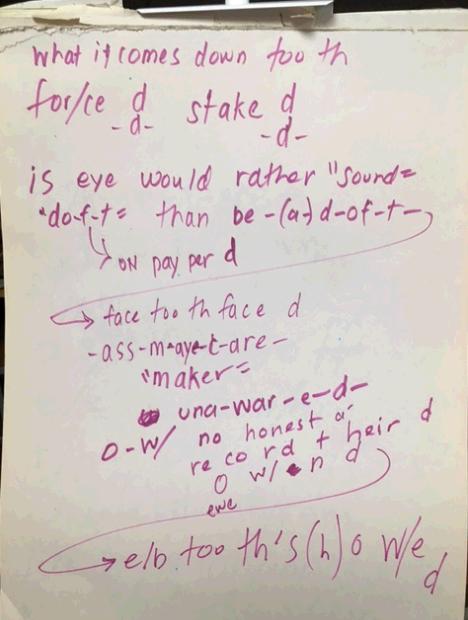 what it comes down too th
for/ce d stake d
-d- -d-
is eye would rather "sound=
"do-f-t= than be -(a-) d-of-t-
ON pay per d
face too th face d
-ass-m-aye-t-are-
"maker=
una-war-e-d-
O-W/ no honest a
re co rd t heir d
O w/ n d
ewe
e/b too th's(h) o w/e d